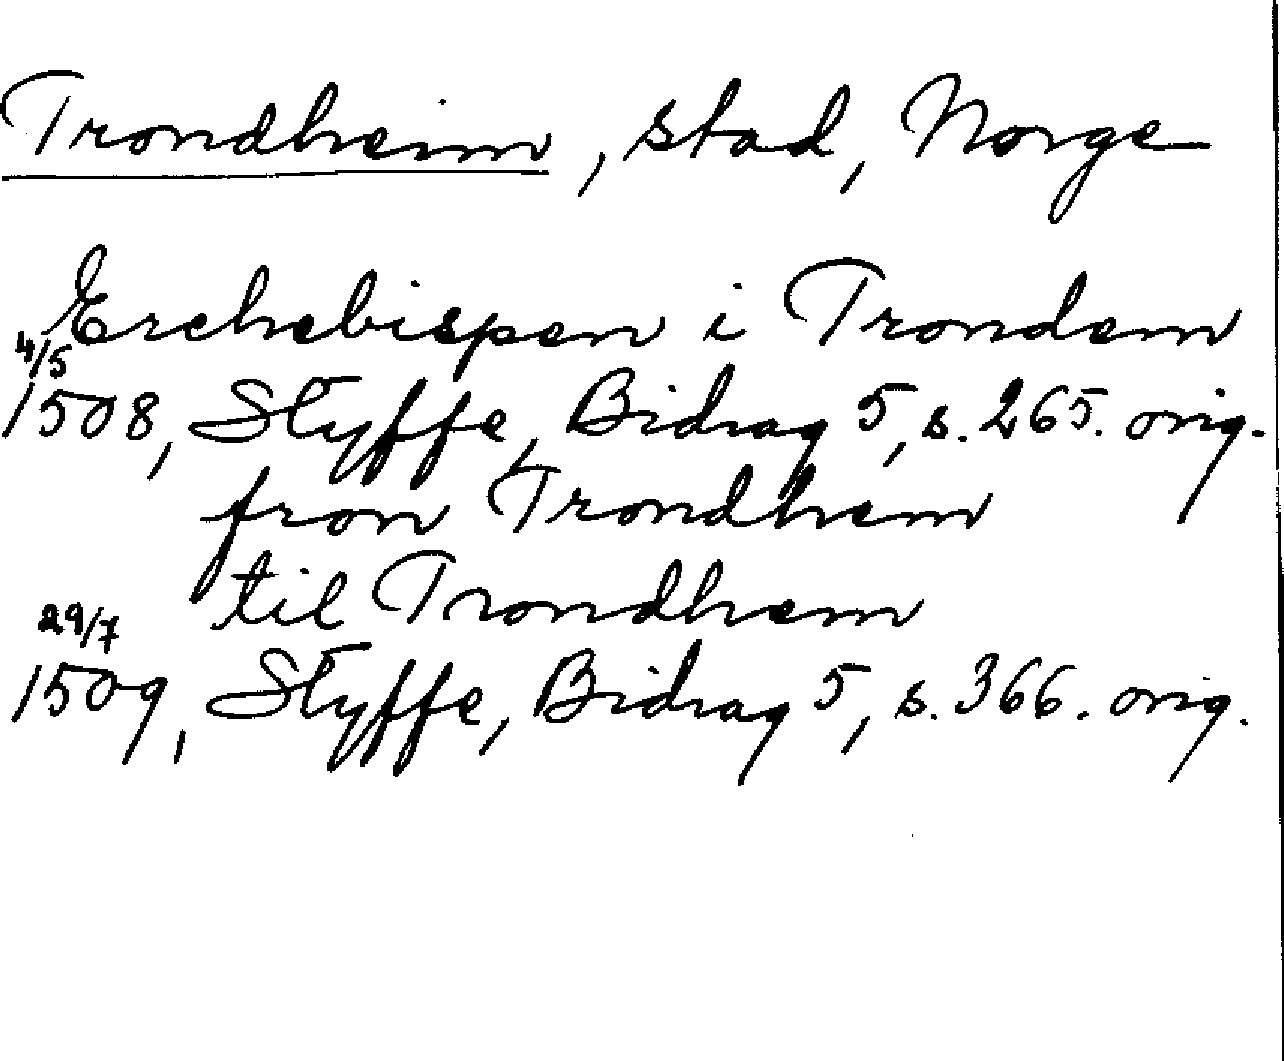 Trondheim, stad, Norge
Erchebispen i Trondem
4/5
1508, Styffe, Bidrag 5, s. 265. orig.
fron Trondhem
til Trondhem
29/7
1509, Styffe, Bidrag 5, s. 366. orig.